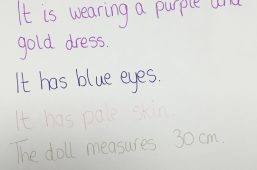 It is wearing a purple and
gold dress.
It has blue eyes.
It has pale skin.
The doll measures 30 cm.